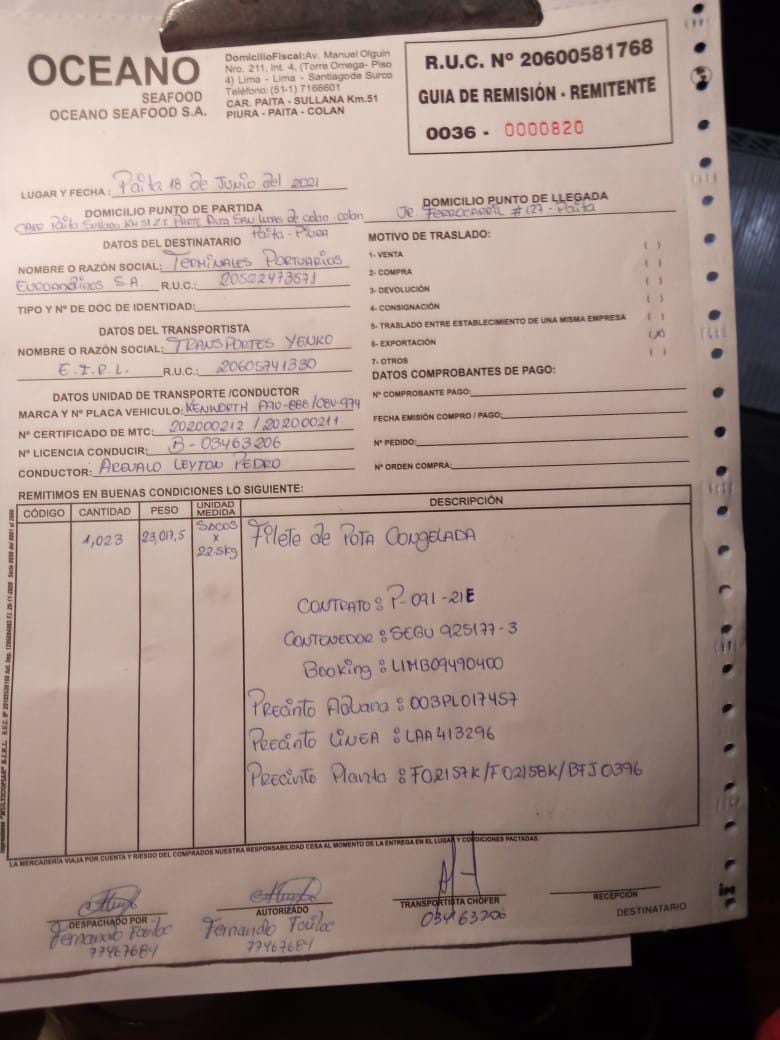 OCEANO
SEAFOOD
OCEANO SEAFOOD S.A.
DomicilioFiscal:Av. Manuel Olguin
Nro. 211, Int. 4, (Torre Omega- Piso
4) Lima - Lima - Santiagode Surco
Teléfono:(51-1) 7166601
CAR. PAITA - SULLANA Km.51
PIURA - PAITA - COLAN
R.U.C. Nº 20600581768
GUIA DE REMISIÓN - REMITENTE
0036 - 0000820
LUGAR Y FECHA : Paita 18 de Junio del 2021
DOMICILIO PUNTO DE PARTIDA
Paita Sullana Parte Alta San Lucas de Colan - Colan
Paita - Piura
DOMICILIO PUNTO DE LLEGADA
Jr Ferrocarril #127 - Paita
DATOS DEL DESTINATARIO
NOMBRE O RAZÓN SOCIAL: Terminales Portuarios
Euroandinos S.A R.U.C.: 20522473571
TIPO Y Nº DE DOC DE IDENTIDAD:
DATOS DEL TRANSPORTISTA
NOMBRE O RAZÓN SOCIAL: TRANSPORTES YENKO
E.I.R.L. R.U.C.: 20605741330
DATOS UNIDAD DE TRANSPORTE /CONDUCTOR
MARCA Y Nº PLACA VEHICULO: KENWORTH
Nº CERTIFICADO DE MTC: 202000212 / 202000211
Nº LICENCIA CONDUCIR: B - 03463206
CONDUCTOR: AREVALO LEYTON PEDRO
MOTIVO DE TRASLADO:
1- VENTA ( )
2- COMPRA ( )
3- DEVOLUCIÓN ( )
4- CONSIGNACIÓN ( )
5- TRASLADO ENTRE ESTABLECIMIENTO DE UNA MISMA EMPRESA ( )
6- EXPORTACIÓN (X)
7- OTROS ( )
DATOS COMPROBANTES DE PAGO:
Nº COMPROBANTE PAGO:
FECHA EMISIÓN COMPRO / PAGO:
Nº PEDIDO:
Nº ORDEN COMPRA:
REMITIMOS EN BUENAS CONDICIONES LO SIGUIENTE:
CÓDIGO CANTIDAD PESO UNIDAD MEDIDA DESCRIPCIÓN
1,023 23,017,5 SACOS x 22.5kg Filete de POTA CONGELADA
CONTRATO : P-091-21E
CONTENEDOR : SEGU 925177-3
Booking : LIMB09490400
Precinto Aduana : 003PL017457
Precinto LÍNEA : LAA413296
Precinto Planta : F02157K/F02158K/BTJ0396
LA MERCADERÍA VIAJA POR CUENTA Y RIESGO DEL COMPRADOS NUESTRA RESPONSABILIDAD CESA AL MOMENTO DE LA ENTREGA EN EL LUGAR Y CONDICIONES PACTADAS.
DESPACHADO POR
Fernando
77467684
AUTORIZADO
Fernando
77467684
TRANSPORTISTA CHOFER
03463206
RECEPCIÓN
DESTINATARIO